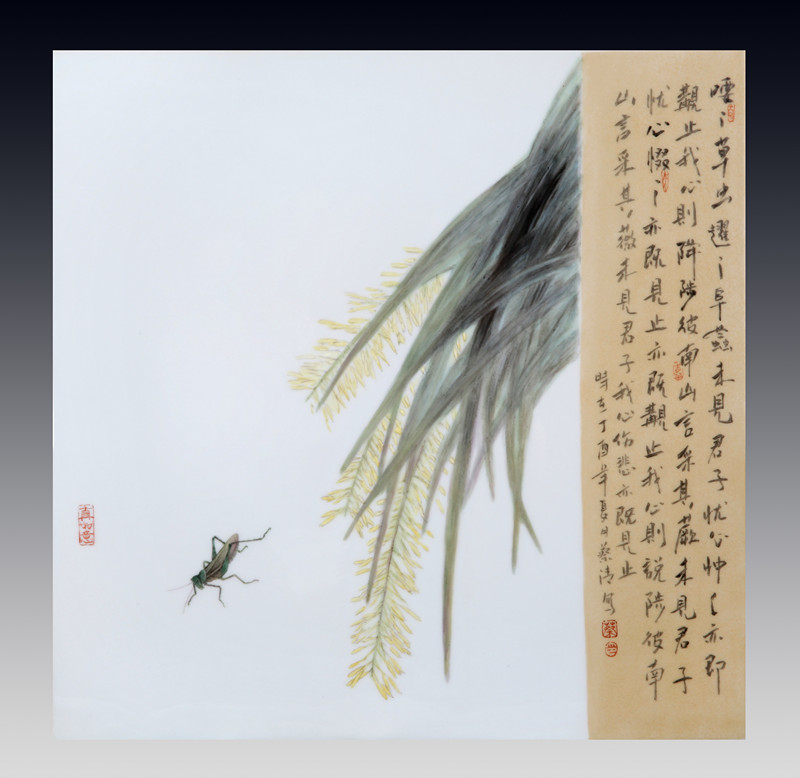 喓〻草虫趯〻阜螽未見君子忧心忡〻亦即
覯止我心則降陟彼南山言采其蕨未見君子
忧心惙〻亦既見止亦既覯止我心則説陟彼南
山言采其薇未見君子我心伤悲亦既見止
时在丁酉年夏月蔡清写